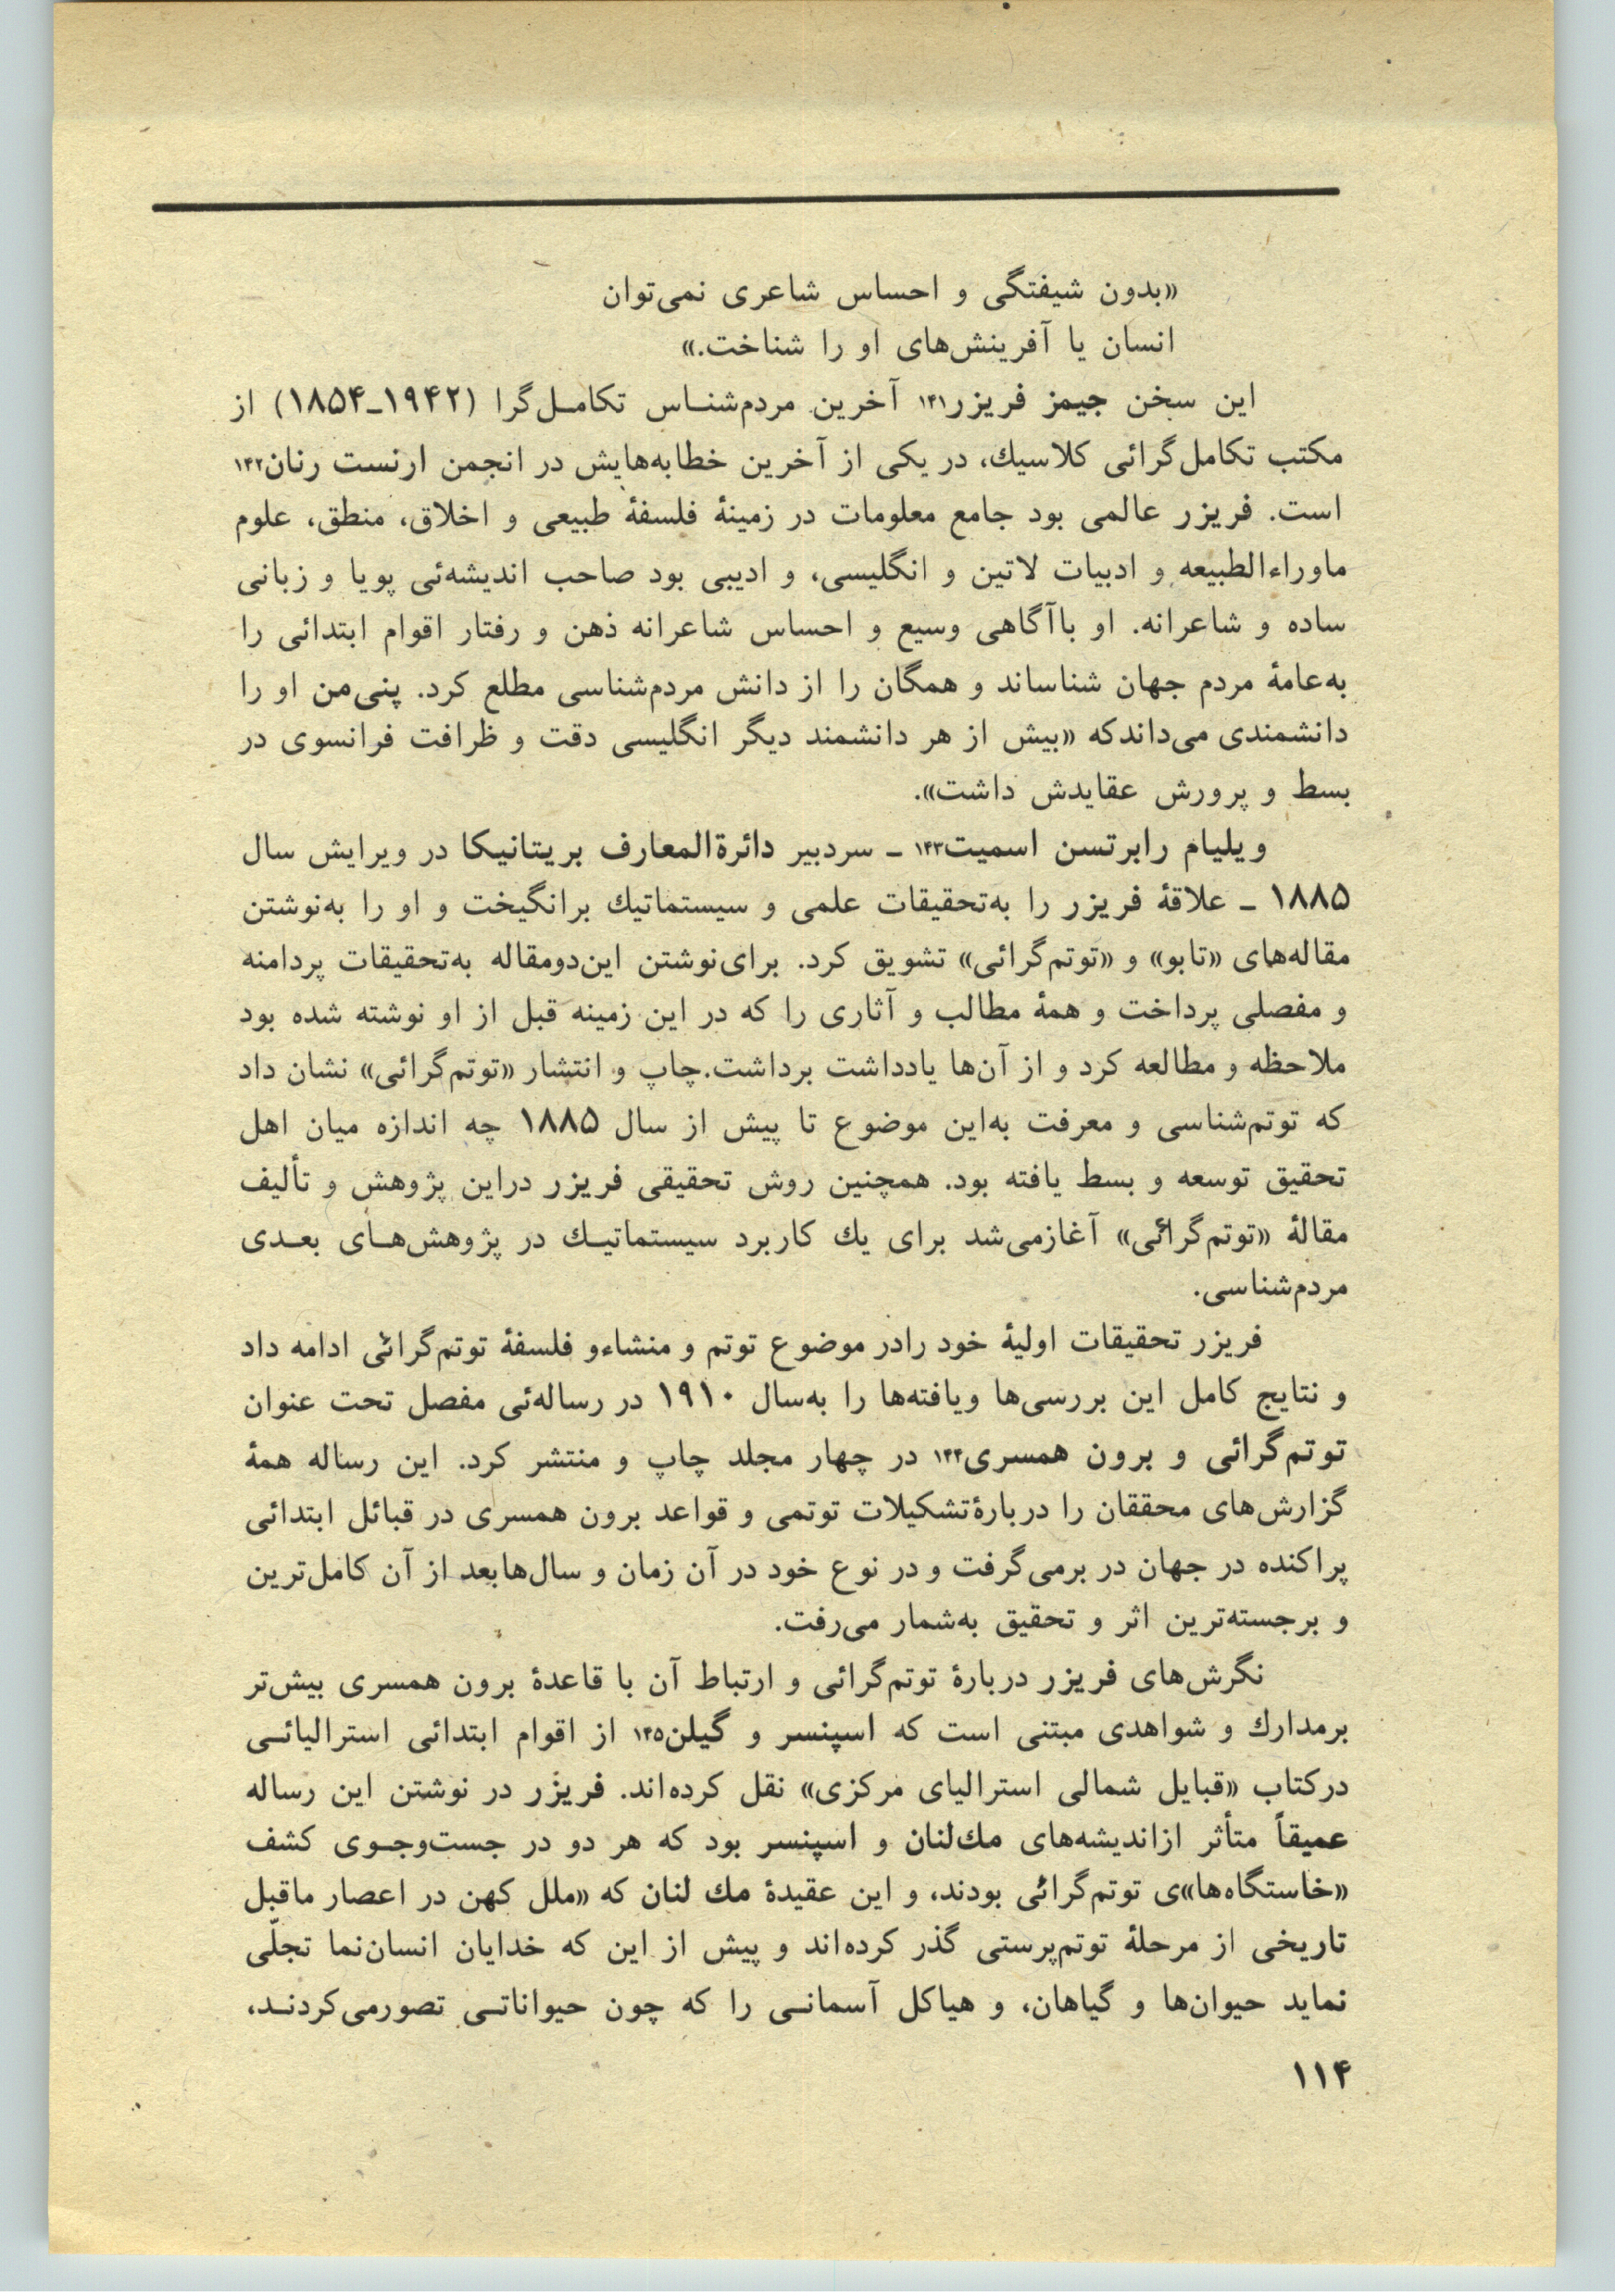 «بدون شیفتگی و احساس شاعری نمی‌توان
انسان یا آفرینش‌های او را شناخت.»
این سخن جیمز فریزر۱۴۱ آخرین مردم‌شناس تکامل‌گرا (۱۹۴۲ـ۱۸۵۴) از
مکتب تکامل‌گرائی کلاسیك، در یکی از آخرین خطابه‌هایش در انجمن ارنست رنان۱۴۲
است. فریزر عالمی بود جامع معلومات در زمینهٔ فلسفهٔ طبیعی و اخلاق، منطق، علوم
ماوراءالطبیعه و ادبیات لاتین و انگلیسی، و ادیبی بود صاحب اندیشه‌ئی پویا و زبانی
ساده و شاعرانه. او باآگاهی وسیع و احساس شاعرانه ذهن و رفتار اقوام ابتدائی را
به‌عامهٔ مردم جهان شناساند و همگان را از دانش مردم‌شناسی مطلع کرد. پنی‌من او را
دانشمندی می‌داندکه «بیش از هر دانشمند دیگر انگلیسی دقت و ظرافت فرانسوی در
بسط و پرورش عقایدش داشت».
ویلیام رابرتسن اسمیت۱۴۳ ـ سردبیر دائرةالمعارف بریتانیکا در ویرایش سال
۱۸۸۵ ـ علاقهٔ فریزر را به‌تحقیقات علمی و سیستماتیك برانگیخت و او را به‌نوشتن
مقاله‌های «تابو» و «توتم‌گرائی» تشویق کرد. برای‌نوشتن این‌دومقاله به‌تحقیقات پردامنه
و مفصلی پرداخت و همهٔ مطالب و آثاری را که در این زمینه قبل از او نوشته شده بود
ملاحظه و مطالعه کرد و از آن‌ها یادداشت برداشت.چاپ و انتشار «توتم‌گرائی» نشان داد
که توتم‌شناسی و معرفت به‌این موضوع تا پیش از سال ۱۸۸۵ چه اندازه میان اهل
تحقیق توسعه و بسط یافته بود. همچنین روش تحقیقی فریزر دراین پژوهش و تألیف
مقالهٔ «توتم‌گرائی» آغازمی‌شد برای یك کاربرد سیستماتیـك در پژوهش‌هـای بعـدی
مردم‌شناسی.
فریزر تحقیقات اولیهٔ خود رادر موضوع توتم و منشاءو فلسفهٔ توتم‌گرائی ادامه داد
و نتایج کامل این بررسی‌ها ویافته‌ها را به‌سال ۱۹۱۰ در رساله‌ئی مفصل تحت عنوان
توتم‌گرائی و برون همسری۱۴۴ در چهار مجلد چاپ و منتشر کرد. این رساله همهٔ
گزارش‌های محققان را دربارهٔ‌تشکیلات توتمی و قواعد برون همسری در قبائل ابتدائی
پراکنده در جهان در برمی‌گرفت و در نوع خود در آن زمان و سال‌هابعد از آن کامل‌ترین
و برجسته‌ترین اثر و تحقیق به‌شمار می‌رفت.
نگرش‌های فریزر دربارهٔ توتم‌گرائی و ارتباط آن با قاعدهٔ برون همسری بیش‌تر
برمدارك و شواهدی مبتنی است که اسپنسر و گیلن۱۴۵ از اقوام ابتدائی استرالیائـی
درکتاب «قبایل شمالی استرالیای مرکزی» نقل کرده‌اند. فریزر در نوشتن این رساله
عمیقاً متأثر ازاندیشه‌های مك‌لنان و اسپنسر بود که هر دو در جست‌وجـوی کشف
«خاستگاه‌ها»ی توتم‌گرائی بودند، و این عقیدهٔ مك لنان که «ملل کهن در اعصار ماقبل
تاریخی از مرحلهٔ توتم‌پرستی گذر کرده‌اند و پیش از این که خدایان انسان‌نما تجلّی
نماید حیوان‌ها و گیاهان، و هیاکل آسمانـی را که چون حیواناتـی تصورمی‌کردنـد،
۱۱۴